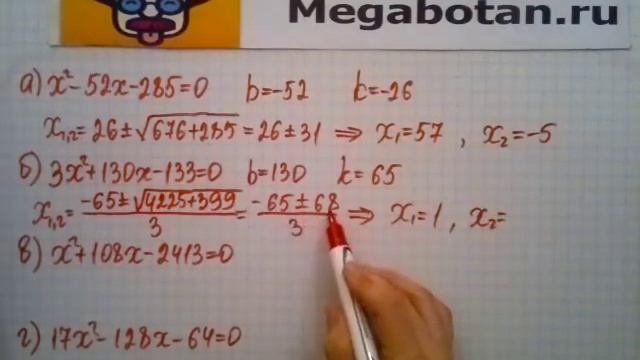 Megabotan.ru
а) x²-52x-285=0 b=-52 k=-26
x₁,₂=26±√676+285=26±31 ⇒ x₁=57, x₂=-5
б) 3x²+130x-133=0 b=130 k=65
x₁,₂=-65±√4225+399/3=-65±68/3 ⇒ x₁=1, x₂=
в) x²+108x-2413=0
г) 17x²-128x-64=0